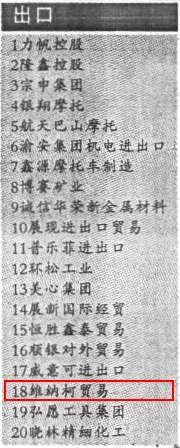 出口
1力帆控股
2隆鑫控股
3宗申集团
4银翔摩托
5航天巴山摩托
6渝安集团机电进出口
7鑫源摩托车制造
8博赛矿业
9诚信华荣新金属材料
10展现进出口贸易
11普乐菲进出口
12环松工业
13美心集团
14展新国际经贸
15恒胜鑫泰贸易
16顺银对外贸易
17威意可进出口
18维纳柯贸易
19弘愿工具集团
20晓林精细化工